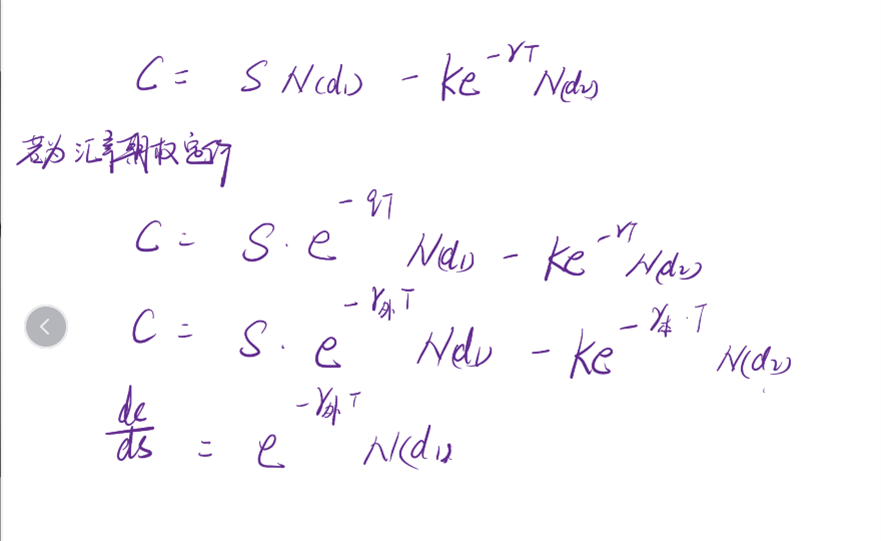 C = S N(d₁) - Ke^{-rT} N(d₂)
若为汇率期权定价
C = S · e^{-qT} N(d₁) - Ke^{-rT} N(d₂)
C = S · e^{-r外T} N(d₁) - Ke^{-r本·T} N(d₂)
dc/ds = e^{-r外T} N(d₁)